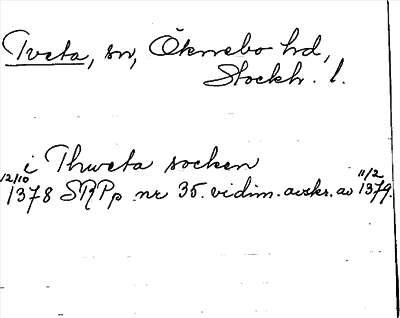 Tveta, sn, Öknebo hd,
Stockh. l.
i Thweta socken
12/10 1378 SRPp nr 35. vidim. avskr. av 11/2 1379.